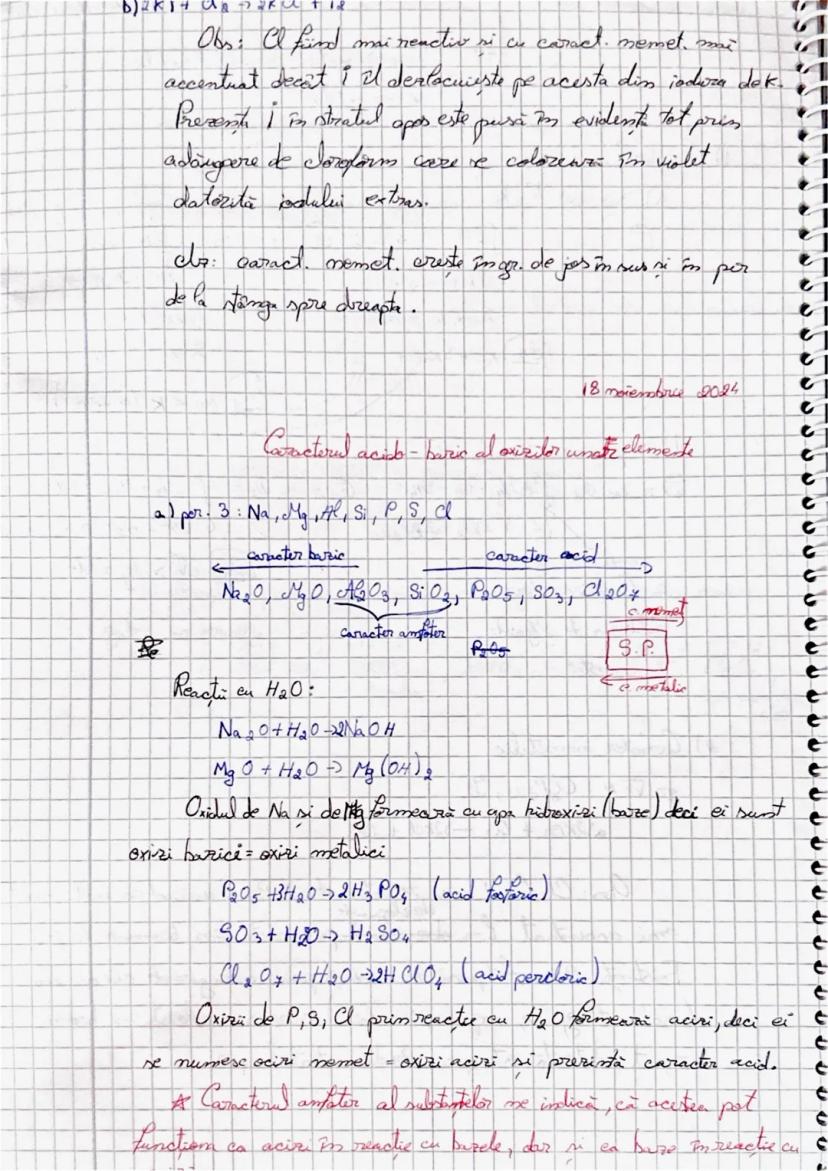 b) 2KI + Cl2 → 2KCl + I2
Obs: Cl fiind mai reactiv si cu caract. nemet. mai
accentuat decât I îl dezlocuiește pe acesta din iodura de K.
Prezența I în stratul apos este pusă în evidență tot prin
adăugere de cloroform care se colorează în violet
datorită iodului extras.
caract. nemet. crește în gr. de jos în sus și în per
de la stânga spre dreapta.
18 noiembrie 2024
Caracterul acido-bazic al oxizilor unor elemente
a) per. 3: Na, Mg, Al, Si, P, S, Cl
caracter bazic caracter acid
Na2O, MgO, Al2O3, SiO2, P2O5, SO3, Cl2O7
c. nemet
caracter amfoter P2O5 S.P.
c. metalic
Reacții cu H2O:
Na2O + H2O → 2NaOH
MgO + H2O → Mg(OH)2
Oxidul de Na și de Mg formează cu apa hidroxizi (baze) deci ei sunt
oxizi bazici = oxizi metalici
P2O5 + 3H2O → 2H3PO4 (acid fosforic)
SO3 + H2O → H2SO4
Cl2O7 + H2O → 2HClO4 (acid percloric)
Oxizii de P, S, Cl prin reacție cu H2O formează acizi, deci ei
se numesc oxizi nemet = oxizi acizi și prezintă caracter acid.
* Caracterul amfoter al substanțelor ne indică, că acestea pot
funcționa ca acizi în reacție cu bazele, dar și ca baze în reacție cu